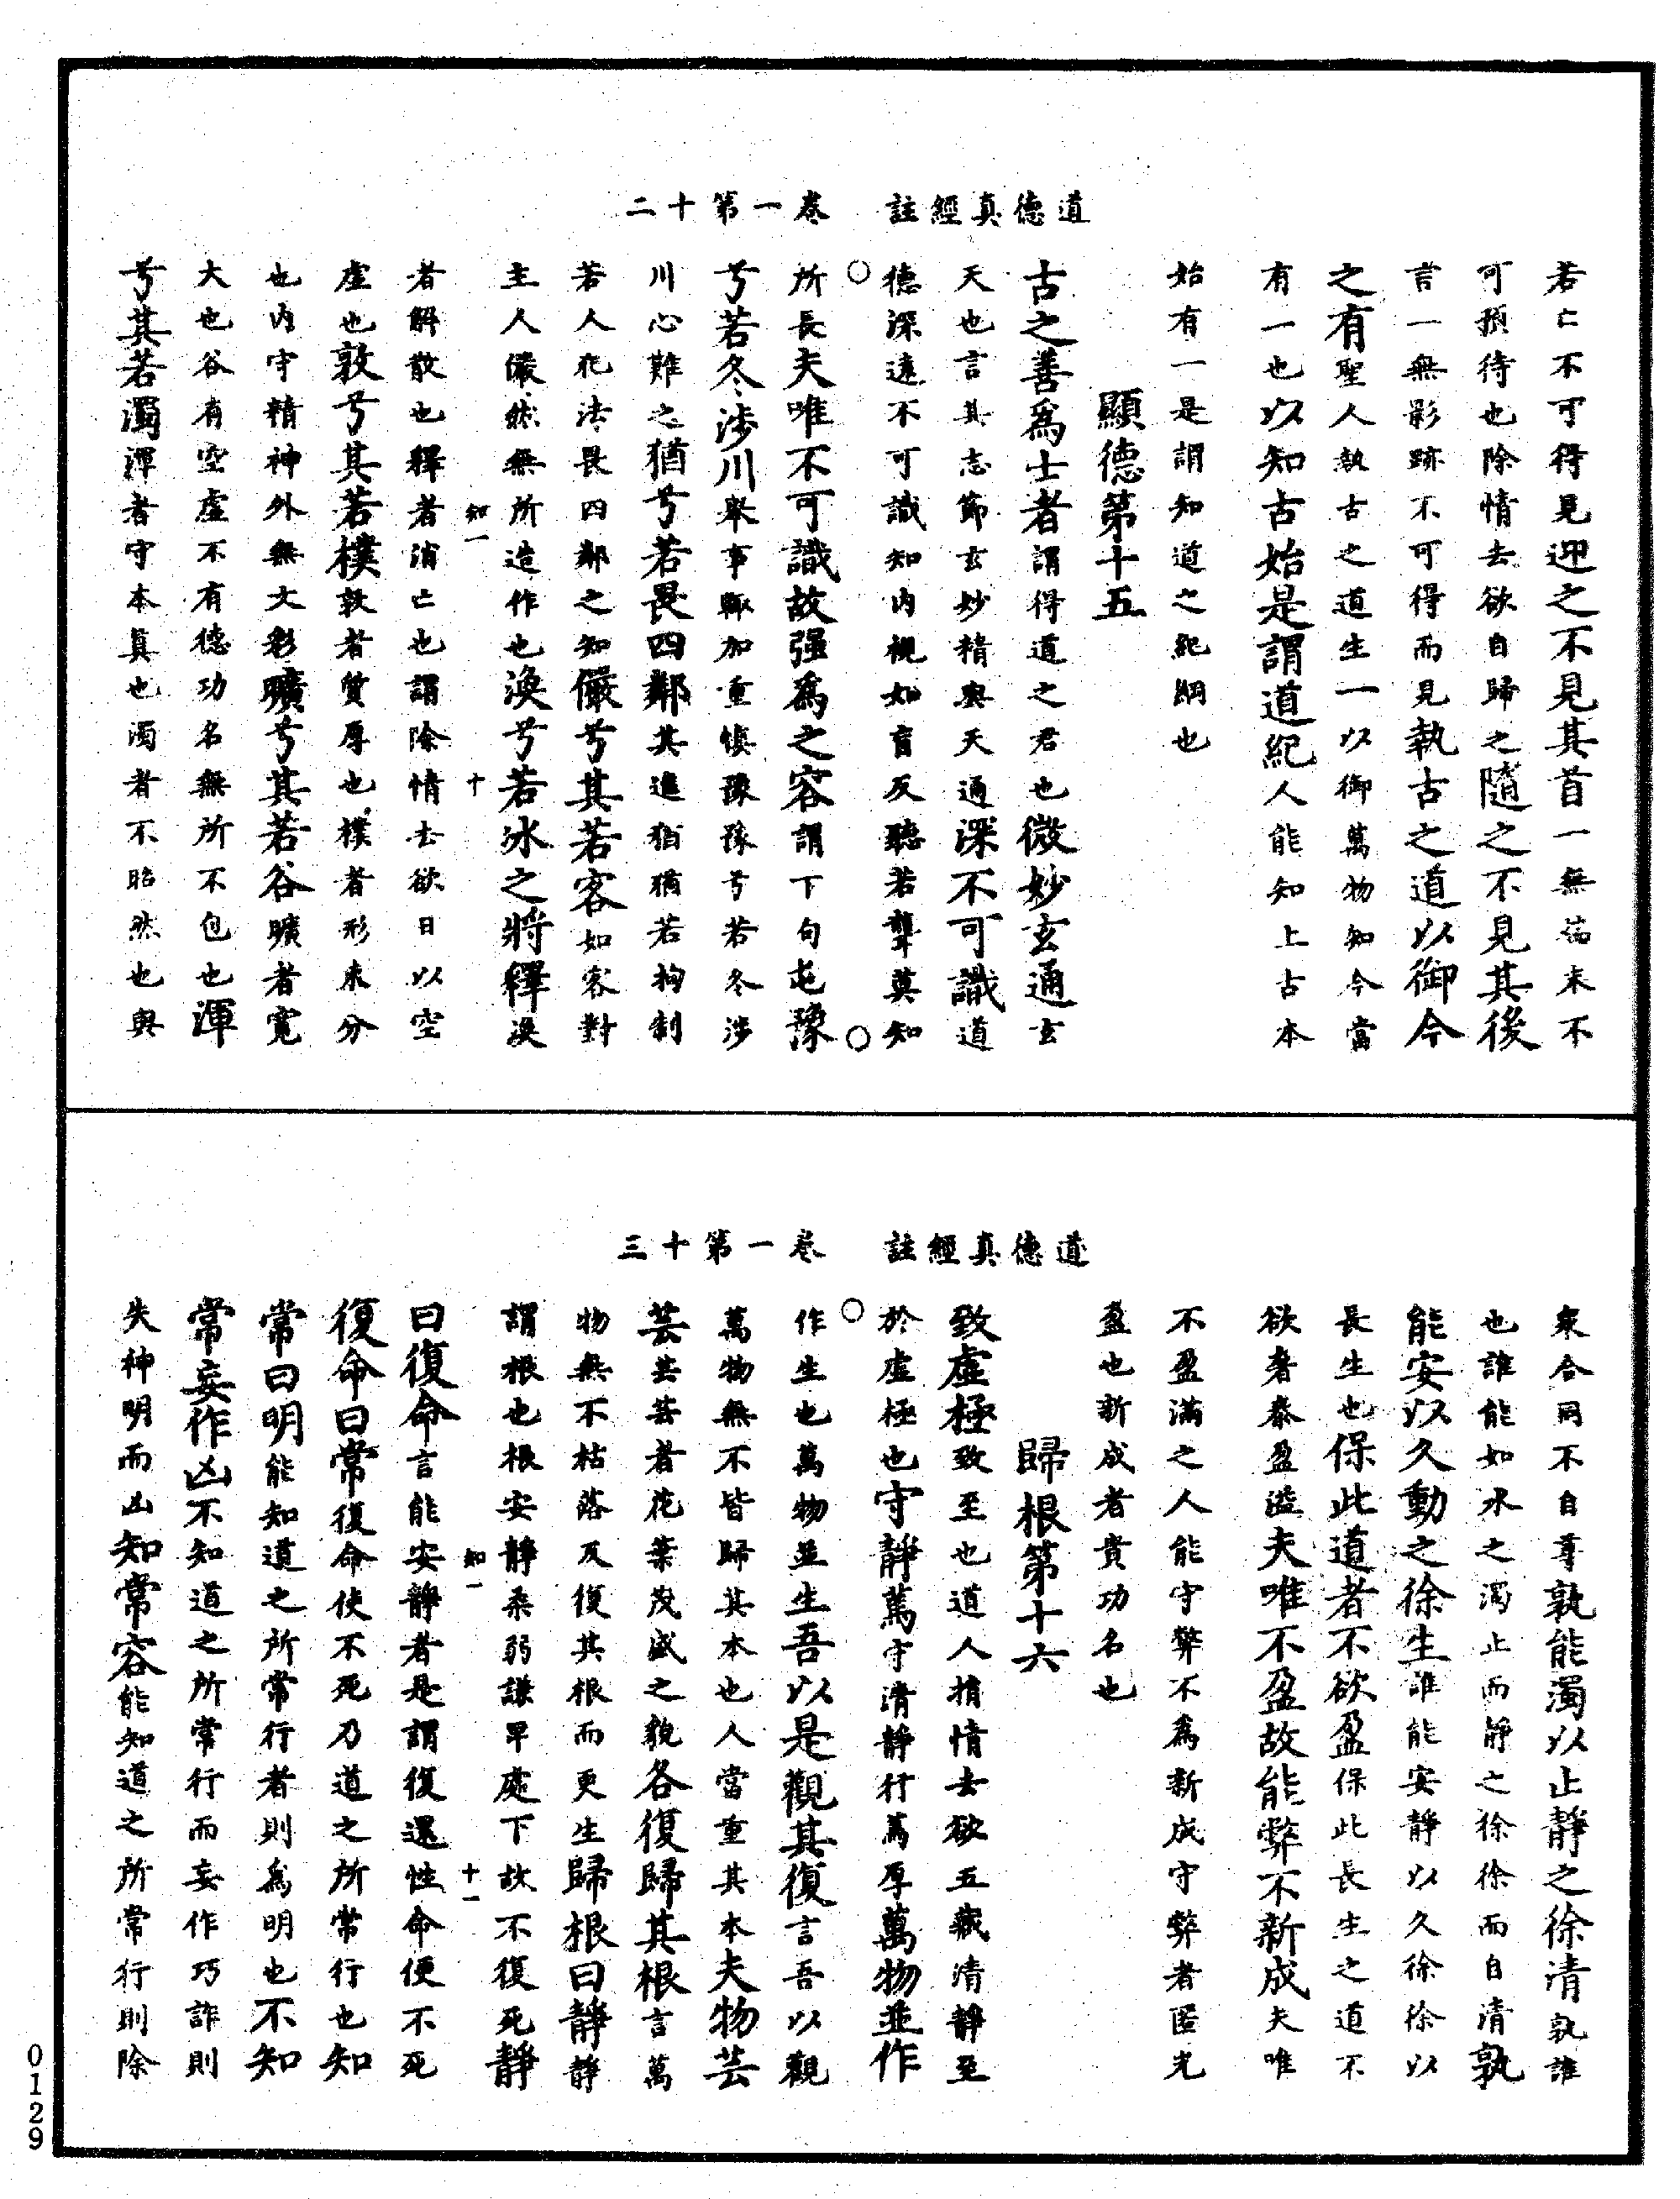 道德真經註　卷一第十二
若亡不可得見迎之不見其首一無端末不
可預待也除情去欲自歸之隨之不見其後
言一無影跡不可得而見執古之道以御今
之有聖人執古之道生一以御萬物知今當
有一也以知古始是謂道紀人能知上古本
始有一是謂知道之紀綱也
顯德第十五
古之善為士者謂得道之君也微妙玄通玄
天也言其志節玄妙精與天通深不可識道
德深遠不可識知內視如盲反聽若聾莫知
所長夫唯不可識故强為之容謂下句也豫
兮若冬涉川舉事輙加重慎豫豫兮若冬涉
川心難之猶兮若畏四鄰其進猶猶若拘制
若人犯法畏四鄰之知儼兮其若客如客對
主人儼然無所造作也渙兮若冰之將釋渙
知一　十
者解散也釋者消亡也謂除情去欲日以空
虛也敦兮其若樸敦者質厚也樸者形未分
也內守精神外無文彩曠兮其若谷曠者寬
大也谷有空虛不有德功名無所不包也渾
兮其若濁渾者守本真也濁者不昭然也與
道德真經註　卷一第十三
衆合同不自尊孰能濁以止靜之徐清孰誰
也誰能如水之濁止而靜之徐徐而自清孰
能安以久動之徐生誰能安靜以久徐徐以
長生也保此道者不欲盈保此長生之道不
欲奢泰盈溢夫唯不盈故能弊不新成夫唯
不盈滿之人能守弊不為新成守弊者匿光
盈也新成者貴功名也
歸根第十六
致虛極致至也道人捐情去欲五藏清靜至
於虛極也守靜篤守清靜行篤厚萬物並作
作生也萬物並生吾以是觀其復言吾以觀
萬物無不皆歸其本也人當重其本夫物芸
芸芸芸者花葉茂盛之貌各復歸其根言萬
物無不枯落反復其根而更生歸根曰靜靜
謂根也根安靜柔弱謙卑處下故不復死靜
知一　十一
曰復命言能安靜者是謂復還性命便不死
復命曰常復命使不死乃道之所常行也知
常曰明能知道之所常行者則為明也不知
常妄作凶不知道之所常行而妄作巧詐則
失神明而凶知常容能知道之所常行則除
0129